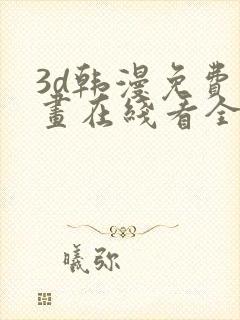 3d韩漫免费
畫在线看全
曦弥